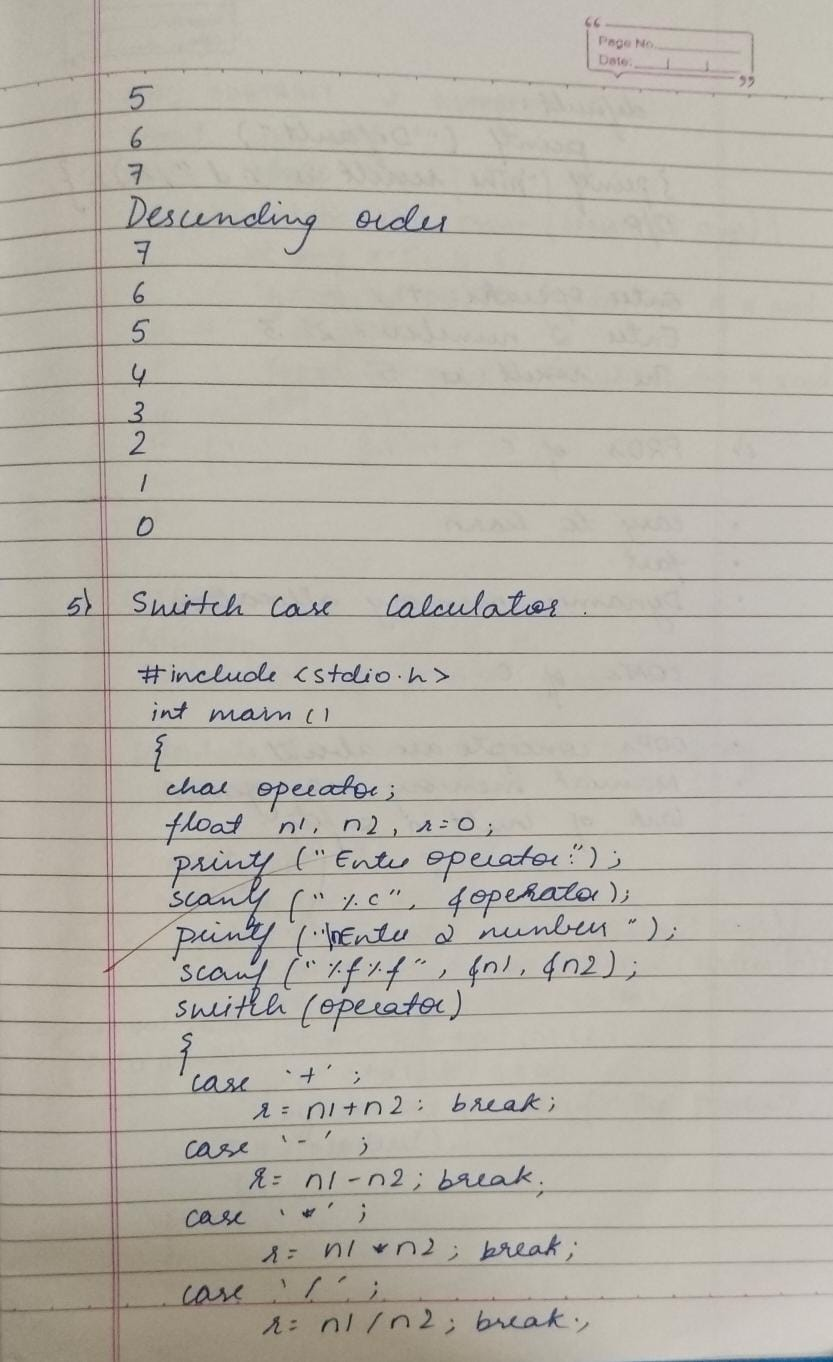 Page No.
Date:
5
6
7
Descending order
7
6
5
4
3
2
1
0
5) Switch Case Calculator.
#include <stdio.h>
int main ()
{
char operator;
float n1, n2, r=0;
printf ("Enter operator:");
scanf ("%c", &operator);
printf ("\nEnter 2 number");
scanf ("%f%f", &n1, &n2);
switch (operator)
{
case '+' ;
r = n1+n2: break;
case '-' ;
r = n1-n2; break;
case '*' ;
r = n1 * n2; break;
case '/' ;
r = n1/n2; break;